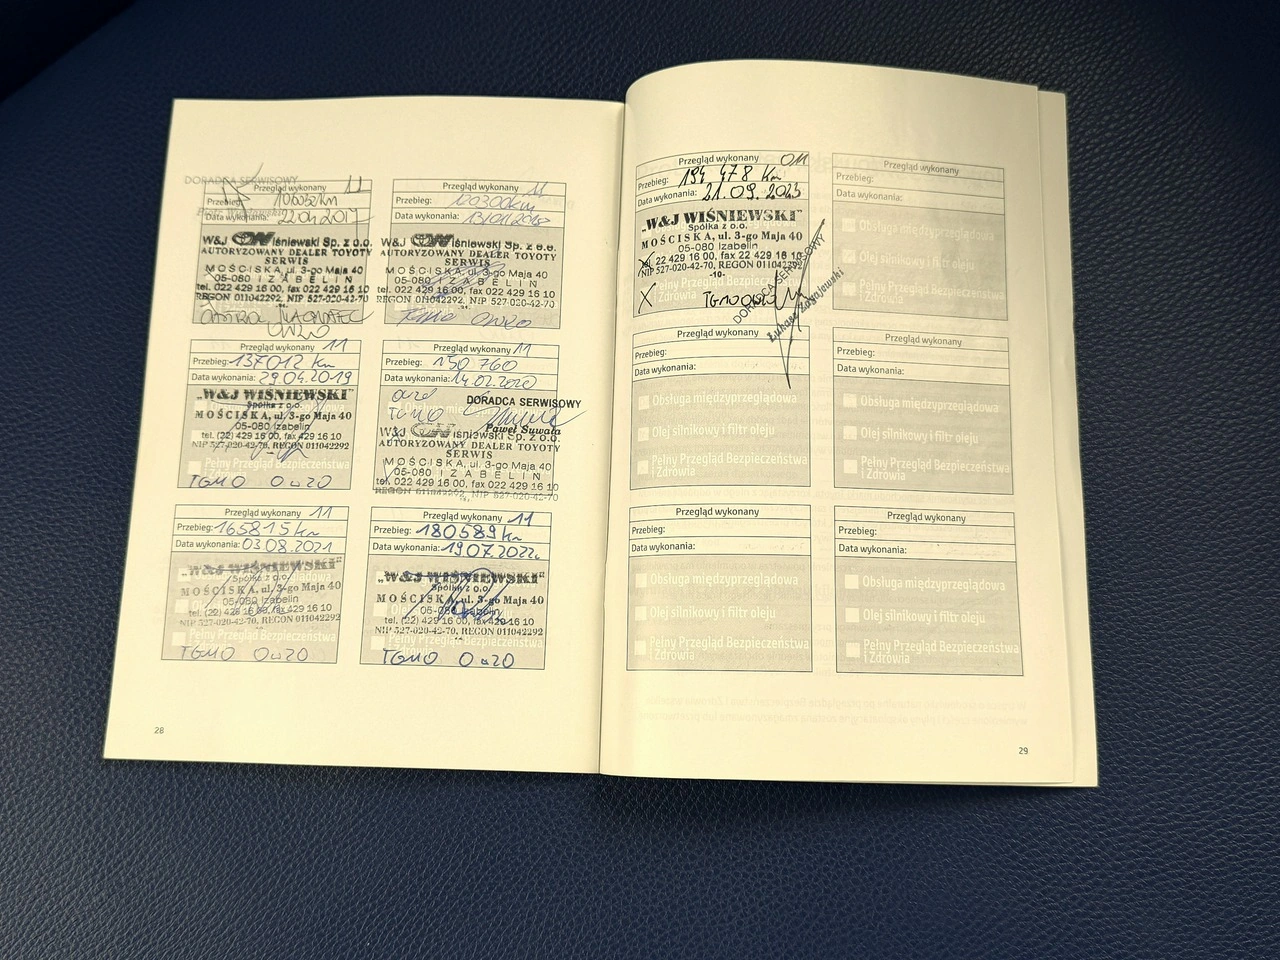 DORADCA SERWISOWY
Przegląd wykonany 11
Przebieg:
Data wykonania: 22.04.2017
W&J Wiśniewski Sp. z o.o.
AUTORYZOWANY DEALER TOYOTY
SERWIS
MOŚCISKA, ul. 3-go Maja 40
05-080 IZABELIN
tel. 022 429 16 00, fax 022 429 16 10
REGON 011042292, NIP 527-020-42-70
0W20
Przegląd wykonany 11
Przebieg: 120300km
Data wykonania:
W&J Wiśniewski Sp. z o.o.
AUTORYZOWANY DEALER TOYOTY
SERWIS
MOŚCISKA, ul. 3-go Maja 40
05-080 IZABELIN
tel. 022 429 16 00, fax 022 429 16 10
REGON 011042292, NIP 527-020-42-70
TGMO 0W20
Przegląd wykonany 11
Przebieg: 137012 km
Data wykonania: 29.04.2019
„W&J WIŚNIEWSKI"
Spółka z o.o.
MOŚCISKA, ul. 3-go Maja 40
05-080 Izabelin
tel. (22) 429 16 00, fax 429 16 10
NIP 527-020-42-70, REGON 011042292
Pełny Przegląd Bezpieczeństwa
i Zdrowia
TGMO 0W20
Przegląd wykonany 11
Przebieg: 150 760
Data wykonania: 14.02.2020
0W20
TGMO
DORADCA SERWISOWY
Paweł Sywala
W&J Wiśniewski Sp. z o.o.
AUTORYZOWANY DEALER TOYOTY
SERWIS
MOŚCISKA, ul. 3-go Maja 40
05-080 IZABELIN
tel. 022 429 16 00, fax 022 429 16 10
REGON 011042292, NIP 527-020-42-70
Przegląd wykonany 11
Przebieg: 165815 km
Data wykonania: 03.08.2021
„W&J WIŚNIEWSKI"
Spółka z o.o.
MOŚCISKA, ul. 3-go Maja 40
05-080 Izabelin
tel. (22) 429 16 00, fax 429 16 10
NIP 527-020-42-70, REGON 011042292
Pełny Przegląd Bezpieczeństwa
i Zdrowia
TGMO 0W20
Przegląd wykonany 11
Przebieg: 180589 km
Data wykonania: 19.07.2022r.
„W&J WIŚNIEWSKI"
Spółka z o.o.
MOŚCISKA, ul. 3-go Maja 40
05-080 Izabelin
tel. (22) 429 16 00, fax 429 16 10
NIP 527-020-42-70, REGON 011042292
Pełny Przegląd Bezpieczeństwa
i Zdrowia
TGMO 0W20
28
Przegląd wykonany 011
Przebieg: 194 478 km
Data wykonania: 21.09.2023
„W&J WIŚNIEWSKI"
Spółka z o.o.
MOŚCISKA, ul. 3-go Maja 40
05-080 Izabelin
tel. 22 429 16 00, fax 22 429 16 10
NIP 527-020-42-70, REGON 011042292
-10-
Pełny Przegląd Bezpieczeństwa
i Zdrowia
TGMO 0W20
DORADCA SERWISOWY
Łukasz Zagajewski
Przegląd wykonany
Przebieg:
Data wykonania:
Obsługa międzyprzeglądowa
Olej silnikowy i filtr oleju
Pełny Przegląd Bezpieczeństwa
i Zdrowia
Przegląd wykonany
Przebieg:
Data wykonania:
Obsługa międzyprzeglądowa
Olej silnikowy i filtr oleju
Pełny Przegląd Bezpieczeństwa
i Zdrowia
Przegląd wykonany
Przebieg:
Data wykonania:
Obsługa międzyprzeglądowa
Olej silnikowy i filtr oleju
Pełny Przegląd Bezpieczeństwa
i Zdrowia
Przegląd wykonany
Przebieg:
Data wykonania:
Obsługa międzyprzeglądowa
Olej silnikowy i filtr oleju
Pełny Przegląd Bezpieczeństwa
i Zdrowia
Przegląd wykonany
Przebieg:
Data wykonania:
Obsługa międzyprzeglądowa
Olej silnikowy i filtr oleju
Pełny Przegląd Bezpieczeństwa
i Zdrowia
29